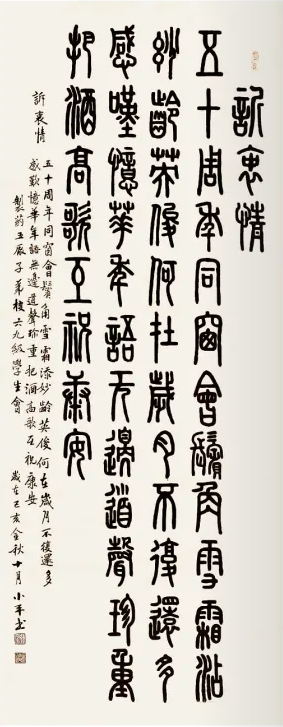 訴衷情
五十周年同窗會鬢角雪霜沾
妙齡英俊何在歲月不復還多
感嘆憶華年語無邊道聲珍重
把酒高歌互祝康安
訴衷情
五十周年同窗會鬢角雪霜添妙齡英俊何在歲月不復還多
感歎憶華年語無邊道聲珍重把酒高歌互祝康安
製衣廠子弟校六九級學生會
歲在己亥金秋十月小平書